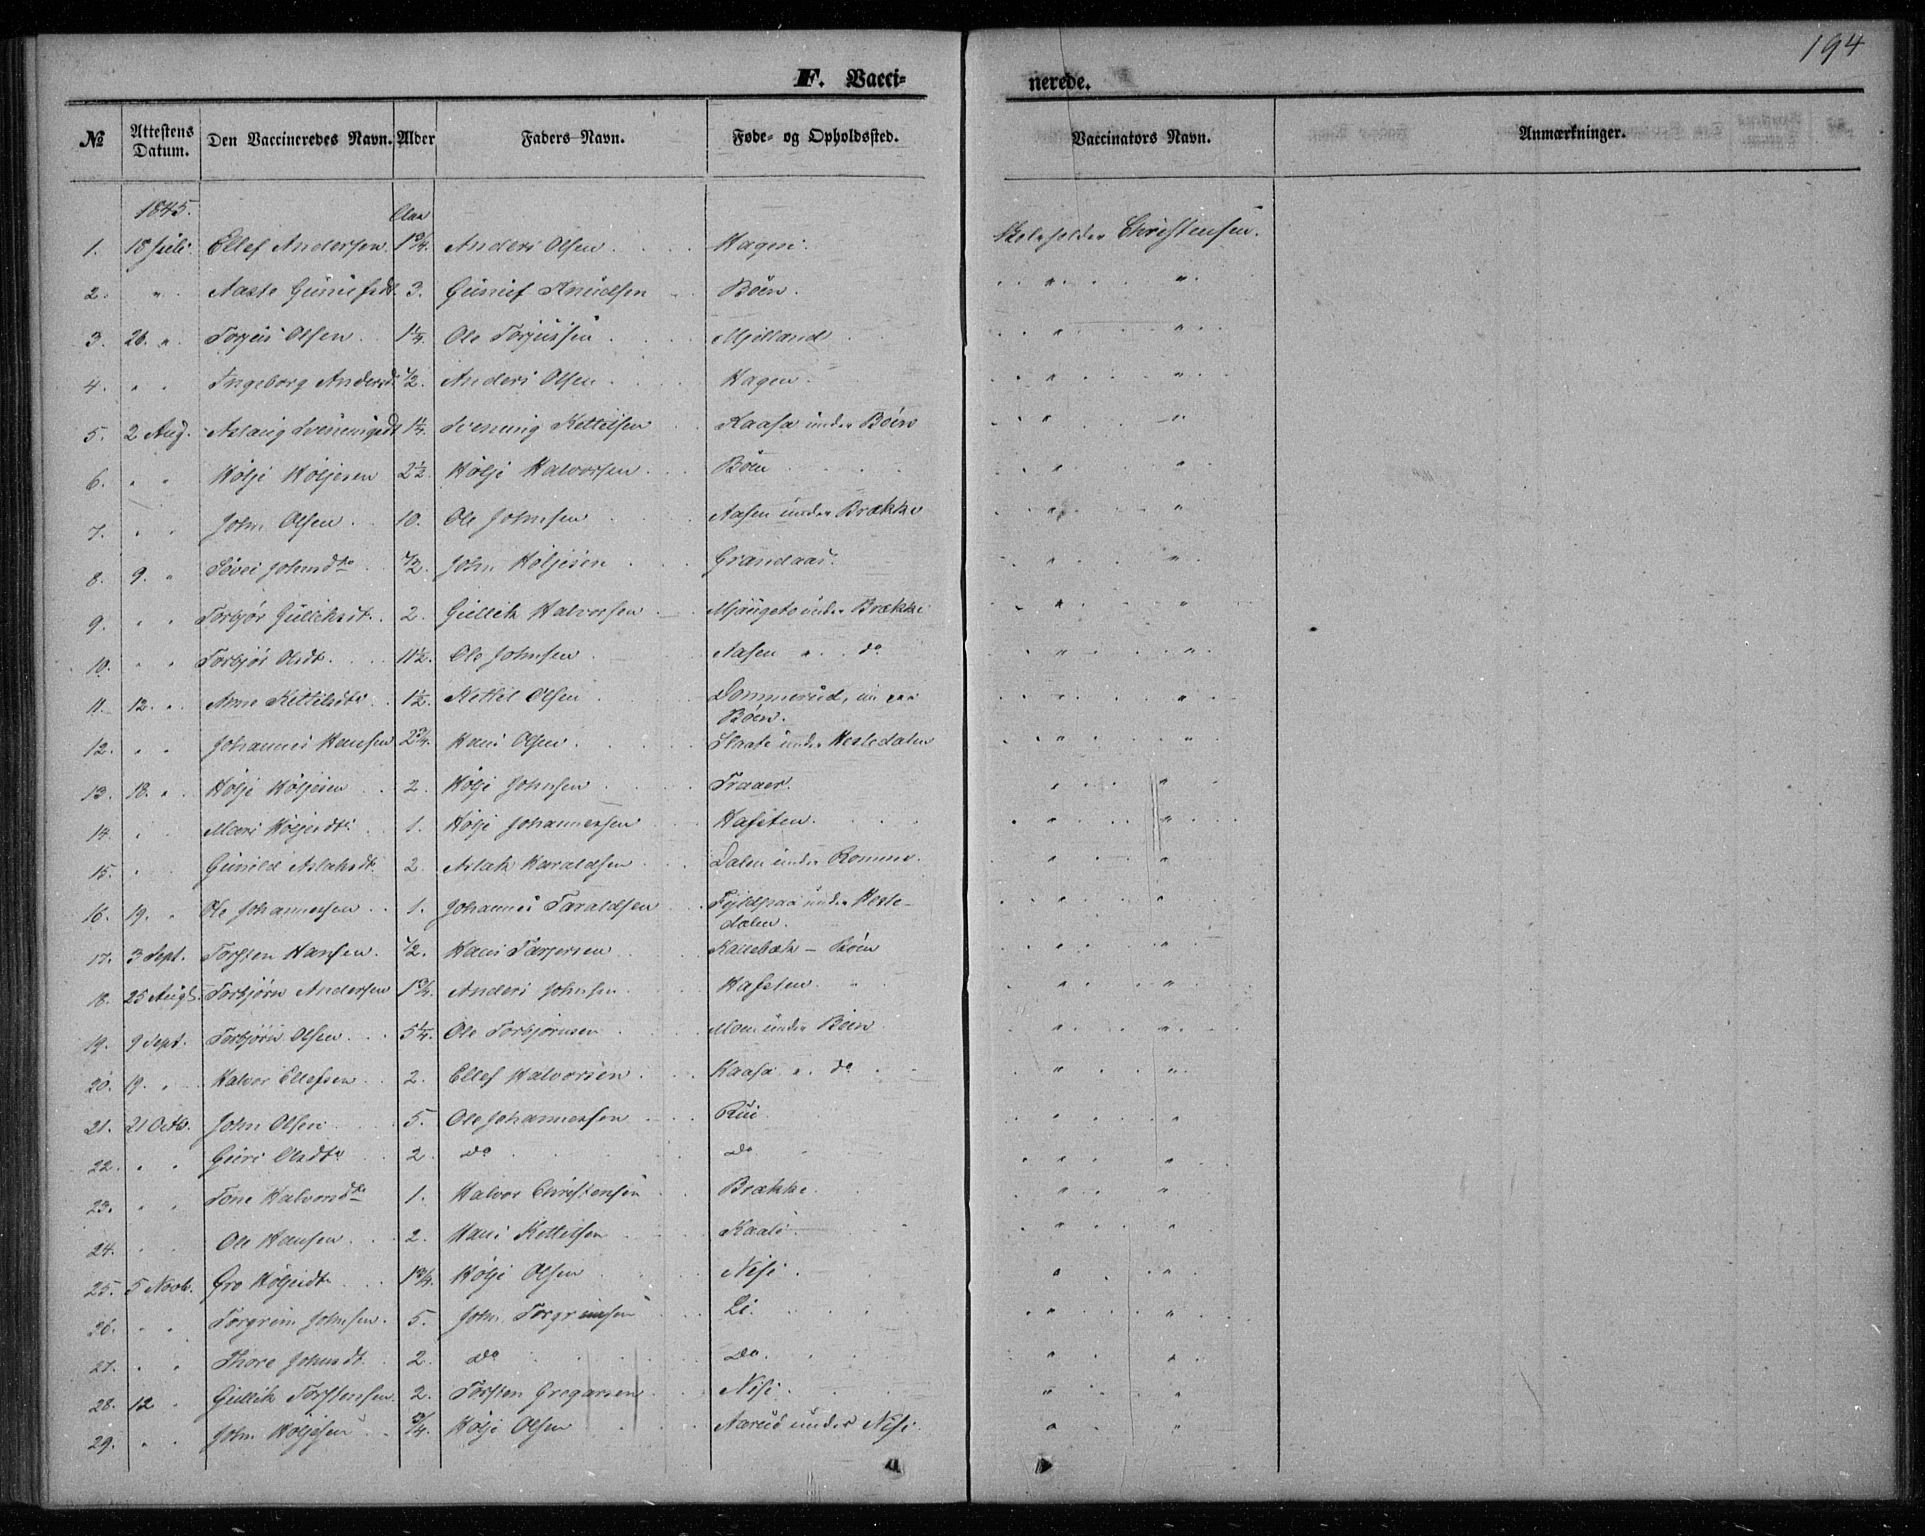 194
F. Vacci-
nerede.
№ Attestens Datum. Den Vaccineredes Navn. Alder Faders Navn. Føde- og Opholdssted. Vaccinators Navn. Anmærkninger.
1845. Aar
1. 18 Juli. Ellef Andersen. 1¾. Anders Olsen. Hagen. Skoleholder Christensen.
2. " Aaste Gunufsdt. 3. Gunuf Knudsen Böen. " "
3. 26. " Torjus Olsen. 1¼. Ole Torjussen. Mjelland " "
4. " " Ingeborg Andersd. ½. Anders Olsen. Hagen. " "
5. 2 Aug. Aslaug Svenungsdt 1¼. Svenung Kettilsen Kaasa under Böen " "
6. " " Hölje Höljesen 2½. Hölje Halvorsen. Böen " "
7. " " John Olsen. 10. Ole Johnsen Aasen under Brække " "
8. 9. " Johnsdtr ½. John Höljesen Grandaas. " "
9. " " Torbjör Gulliksdt. 2. Gullik Halvorsen under Brække " "
10. " " Torbjör Olsdt. 11½. Ole Johnsen Aasen " do " "
11. 12. " Anne Kettilsdtr. 1½. Kettel Olsen Dommerud, un
Böen. " "
12. " " Johannes Hansen 2¾. Hans Olsen. Slaate under Hesledalen " "
13. 18. " Hölje Höljesen 2. Hölje Johnsen Traaer. " "
14. " " Mari Höljesdtr. 1. Hölje Johannessen Hafsten. " "
15. " " Gunild Aslaksdt. 2. Aslak Haraldsen Dalen under Romme. " "
16. 19. " Ole Johannessen 1. Johannes Taraldsen under Hesle-
dalen. " "
17. 3 Sept. Torsten Hansen. ½. Hans Tarjersen Kallebæk - Böen " "
18. 25 Aug. Torbjörn Andersen 1¾. Anders Johnsen Hafsten. " "
19. 9 Sept. Torbjörn Olsen. 5¼. Ole Torbjörnsen Moen under Böen " "
20. 19. " Halvor Ellefsen 2. Ellef Halvorsen. Kaasa " do " "
21. 21 Octb. John Olsen 5. Ole Johannessen Rui " "
22. " " Guri Olsdtr 2. do do " "
23. " " Tone Halvorsdtr 1. Halvor Christensen Brække. " "
24. " " Ole Hansen. 2. Hans Kettilsen Kaalö " "
25. 5 Novb. Gro Höljesdtr 1¾. Hölje Olsen Nisi. " "
26. " " Torgrim Johnsen. 5. John Torgrimsen Li. " "
27. " " Thore Johnsdt. 2. do Do. " "
28. 12 " Gullik Torstensen 2. Torsten Gregarsen Nisi. " "
29. " " John Höljesen ¾. Hölje Olsen Aarud under Nisi. " "